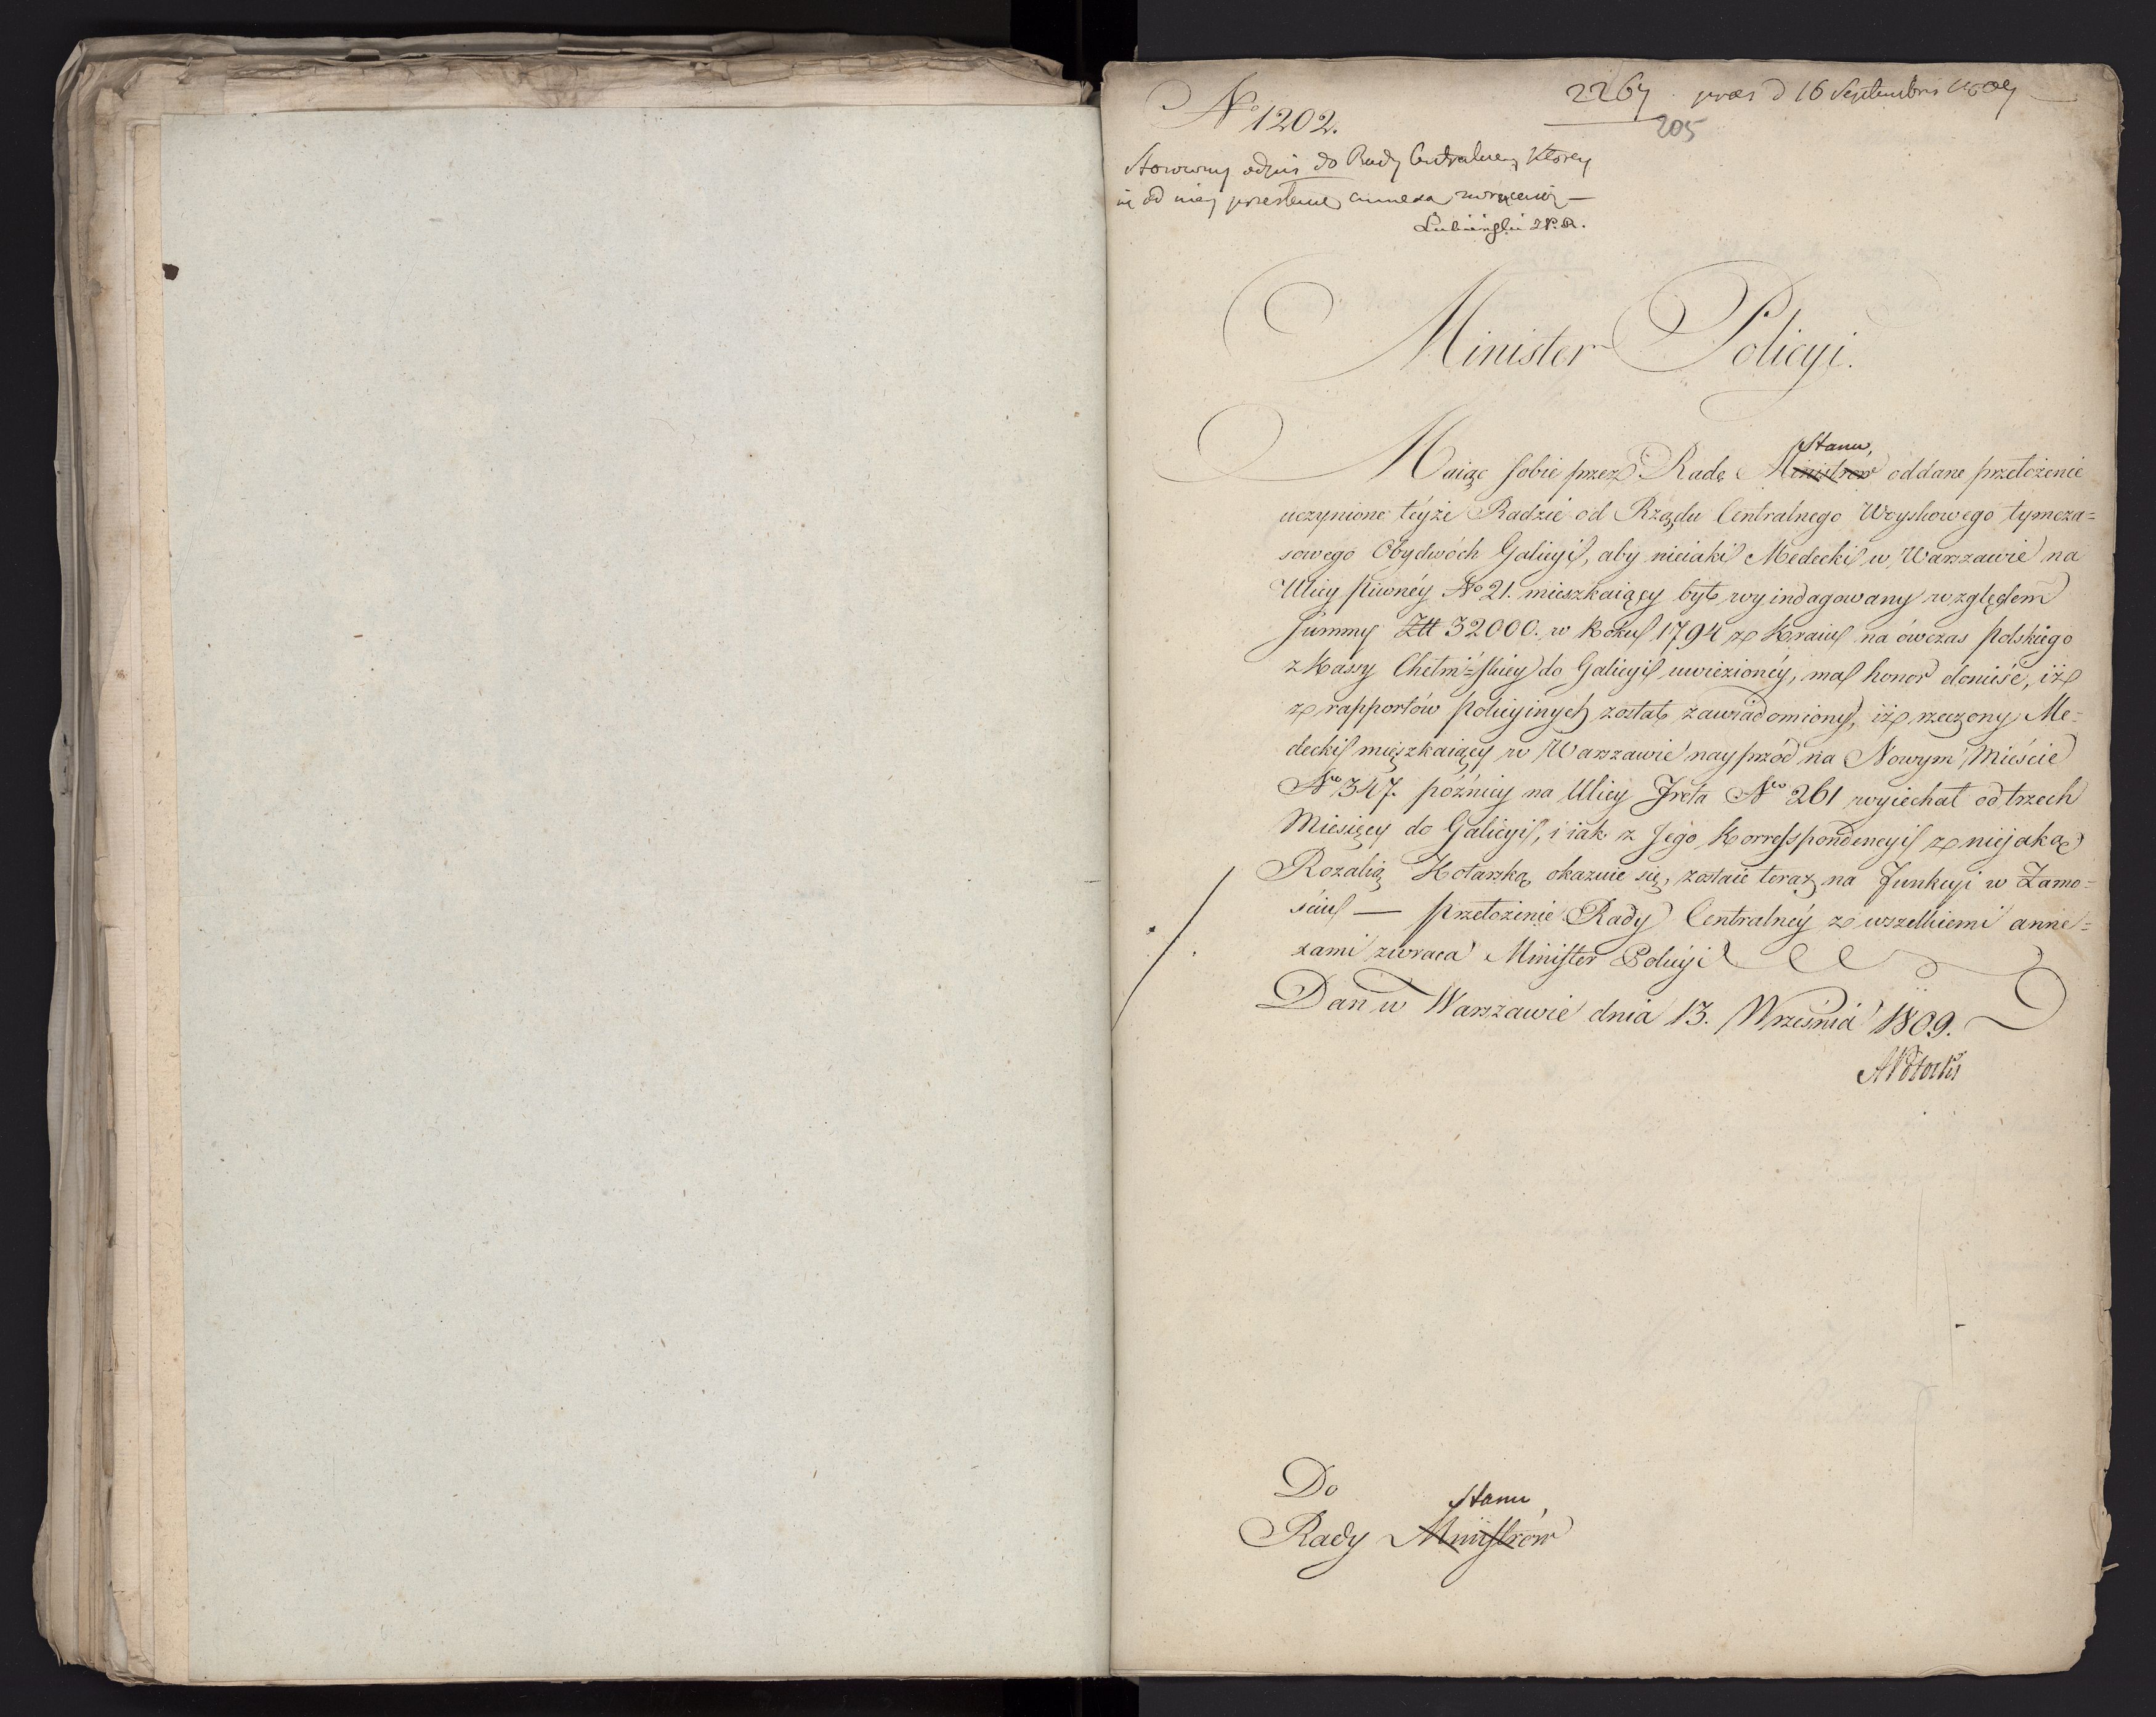 2267 praes d 16 Septembris 1809
205
No 1202.
Stosowny odpis do Rady Centralney, ktorey
się od niey przesłane annexa zwracaią —
Lubieński
Minister Policyi.
Maiąc sobie przez Radę Ministrow Stanu, oddane przełożenie
uczynione téyże Radzie od Rządu Centralnego Woyskowego tymcza=
sowego Obydwóch Galicyi, aby nieiaki Medecki w Warszawie na
Ulicy Piwnéy No 21. mieszkaiący był wyindagowany względem
Summy Złł 32000. w Roku 1794 z Kraiu na ówczas Polskiego
z Kassy Chełmi=skiey do Galicyi uwiezionéy, ma honor donieść, iż
z rapportów Policyinych został zawiadomiony, iż rzeczony Me=
decki mięszkaiący w Warszawie nayprzód na Nowym Mieście
Nro 347. później na Ulicy Freta Nro 261 wyiechał od trzech
Miesięcy do Galicyi, i iak z Jego Korresspondencyi z niejaką
Rozalią Kotarską okazuie się, zostaie teraz na Funkcyi w Zamo=
ściu — przełożenie Rady Centralnéy z wszelkiemi anne=
xami zwraca Minister Policyi
Dan w Warszawie dnia 13. Września 1809.
APotocki
Do
Stanu
Rady Ministrów